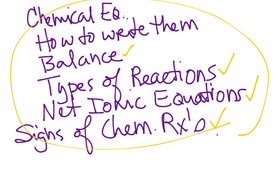 Chemical Eq..
How to write them
Balance
Types of Reactions
Net Ionic Equations
Signs of Chem. Rx's.